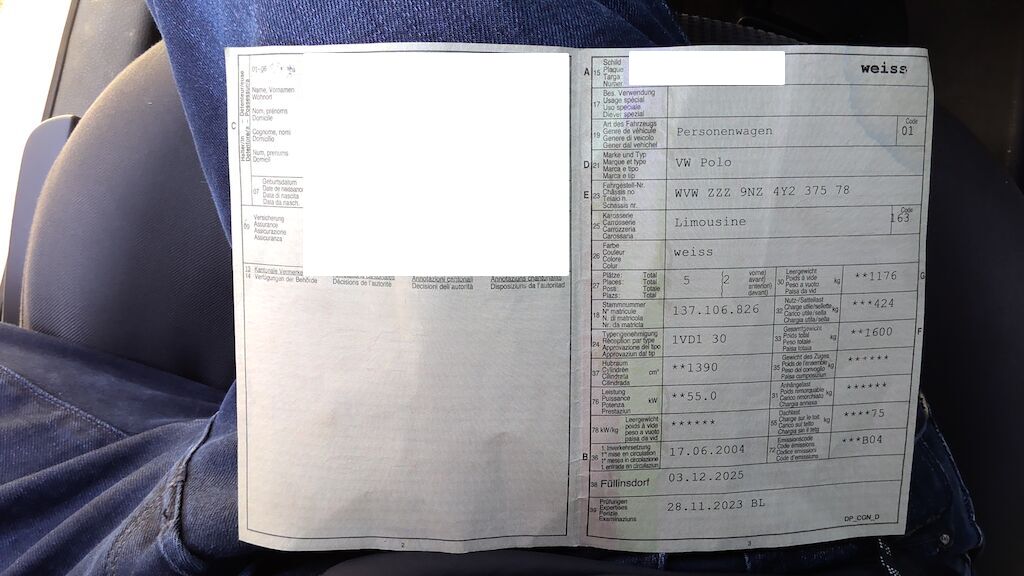 C
Halter/in - Détenteur/euse
Detentore/a - Possessur/a
01-06
Name, Vornamen
Wohnort
Nom, prénoms
Domicile
Cognome, nomi
Domicilio
Num, prenums
Domicil
07
Geburtsdatum
Date de naissance
Data di nascita
Data da nasch.
09
Versicherung
Assurance
Assicurazione
Assicuranza
13 Kantonale Vermerke
14 Verfügungen der Behörde
Décisions de l'autorité
Annotazioni cantonali
Decisioni dell'autorità
Annotaziuns chantunalas
Disposiziuns da l'autoritad
2
A 15
Schild
Plaque
Targa
Numer
weiss
17
Bes. Verwendung
Usage spécial
Uso speciale
Diever spezial
19
Art des Fahrzeugs
Genre de véhicule
Genere di veicolo
Gener dal vehichel
Personenwagen
Code
01
D 21
Marke und Typ
Marque et type
Marca e tipo
Marca e tip
VW Polo
E 23
Fahrgestell-Nr.
Châssis no
Telaio n.
Schassis nr.
WVW ZZZ 9NZ 4Y2 375 78
25
Karosserie
Carrosserie
Carrozzeria
Carossaria
Limousine
Code
163
26
Farbe
Couleur
Colore
Colur
weiss
27
Plätze: Total
Places: Total
Posti: Totale
Plazs: Total
5
2
vorne)
avant)
anteriori)
devant)
30
Leergewicht
Poids à vide
Peso a vuoto
Paisa da vid
kg
**1176
G
18
Stammnummer
N° matricule
N. di matricola
Nr. da matricla
137.106.826
32
Nutz-/Sattellast
Charge utile/sellette
Carico utile/sella
Chargia utila/sella
kg
***424
24
Typengenehmigung
Réception par type
Approvazione del tipo
Approvaziun dal tip
1VD1 30
33
Gesamtgewicht
Poids total
Peso totale
Paisa totala
kg
**1600
F
37
Hubraum
Cylindrée
Cilindrata
Cilindrada
cm³
**1390
35
Gewicht des Zuges
Poids de l'ensemble
Peso del convoglio
Paisa cumposiziun
kg
******
76
Leistung
Puissance
Potenza
Prestaziun
kW
**55.0
31
Anhängelast
Poids remorquable
Carico rimorchiato
Chargia annexa
kg
******
78 kW/kg
Leergewicht
poids à vide
peso a vuoto
paisa da vid
******
55
Dachlast
Charge sur le toit
Carico sul tetto
Chargia sin il tetg
kg
****75
B 36
1. Inverkehrsetzung
1re mise en circulation
1a messa in circolazione
1. entrada en circulaziun
17.06.2004
72
Emissionscode
Code émissions
Codice emissioni
Code d'emissiuns
***B04
38 Füllinsdorf
03.12.2025
39
Prüfungen
Expertises
Perizie
Examinaziuns
28.11.2023 BL
DP_CGN_D
3